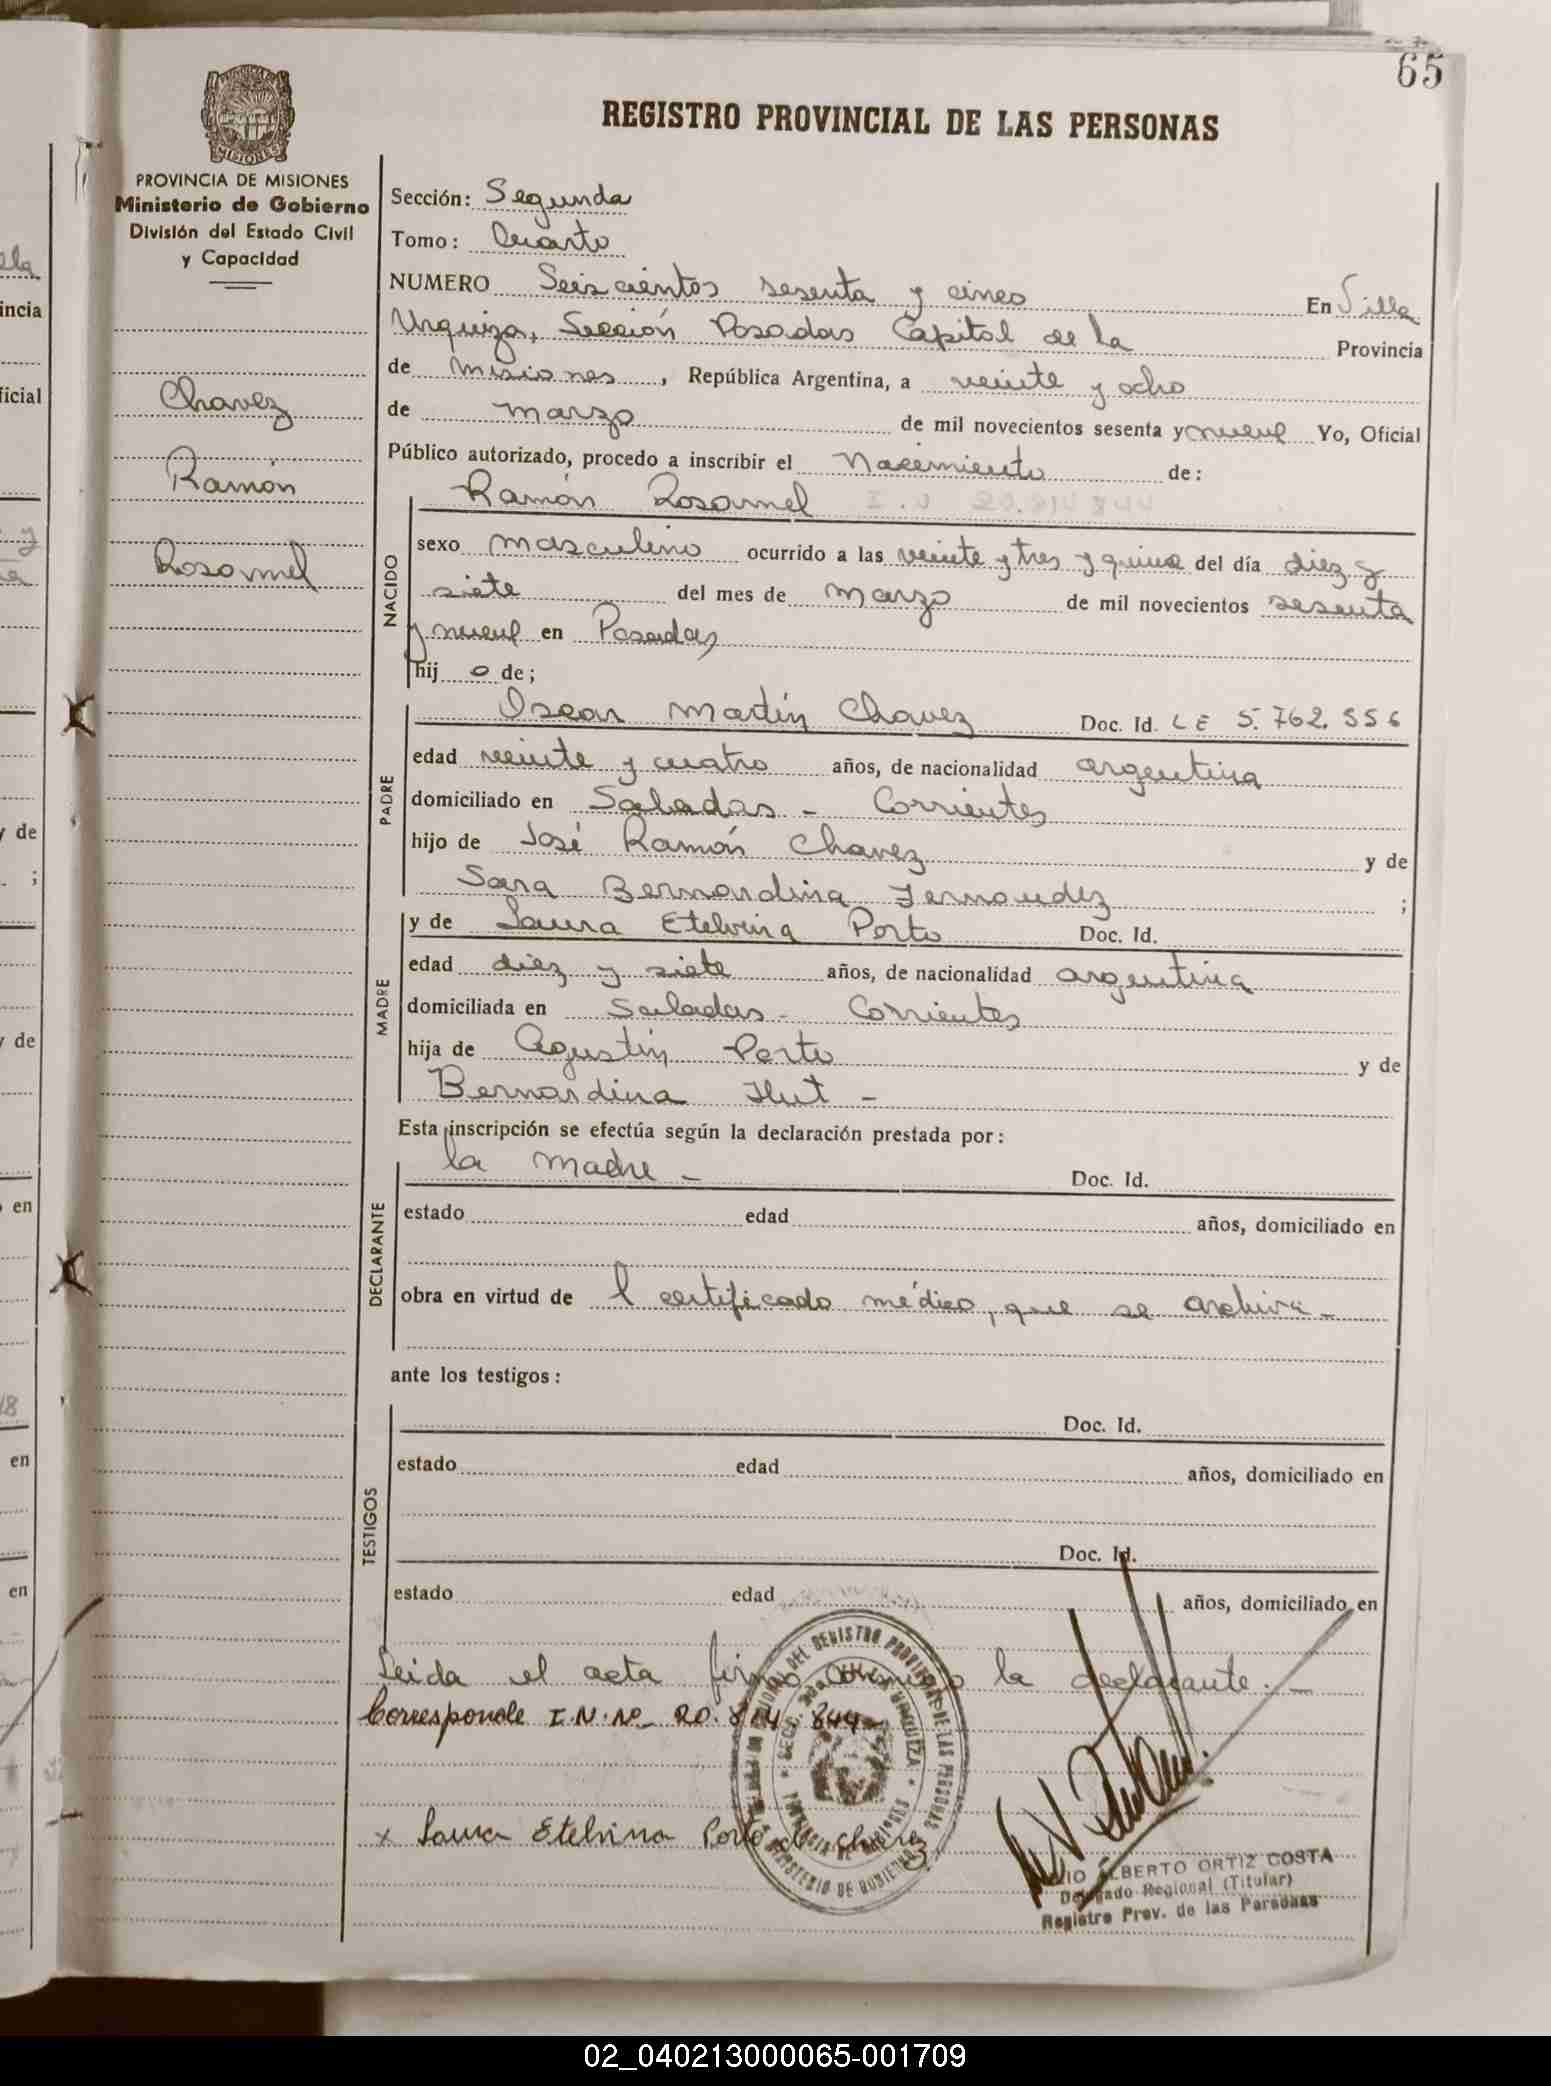 65
PROVINCIA DE MISIONES
PROVINCIA DE MISIONES
Ministerio de Gobierno
División del Estado Civil
y Capacidad
Chavez
Ramón
Rosamel
REGISTRO PROVINCIAL DE LAS PERSONAS
Sección: Segunda
Tomo: Cuarto
NUMERO Seiscientos sesenta y cinco En Villa
Urquiza, Sección Posadas Capital de la Provincia
de misiones, República Argentina, a veinte y ocho
de marzo de mil novecientos sesenta y nueve Yo, Oficial
Público autorizado, procedo a inscribir el Nacimiento de:
Ramón Rosamel I.N 20.814844
NACIDO
sexo masculino ocurrido a las veinte y tres y quince del día diez y
siete del mes de marzo de mil novecientos sesenta
y nueve en Posadas
hij o de;
PADRE
Oscar Martín Chavez Doc. Id. LE 5.762.556
edad veinte y cuatro años, de nacionalidad argentina
domiciliado en Saladas - Corrientes
hijo de José Ramón Chavez y de
Sara Bernardina Fernandez ;
MADRE
y de Laura Etelvina Porto Doc. Id.
edad diez y siete años, de nacionalidad argentina
domiciliada en Saladas - Corrientes
hija de Agustin Porto y de
Bernardina -
Esta inscripción se efectúa según la declaración prestada por:
DECLARANTE
la madre - Doc. Id.
estado edad años, domiciliado en
obra en virtud de l certificado médico, que se archiva -
ante los testigos:
TESTIGOS
Doc. Id.
estado edad años, domiciliado en
Doc. Id.
estado edad años, domiciliado en
Leida el acta firma conmigo la declarante. -
Corresponde I.N.Nº 20.814.844-
x Laura Etelvina Porto de Chavez
ALBERTO ORTIZ COSTA
Delegado Regional (Titular)
Registro Prov. de las Personas
02_040213000065-001709